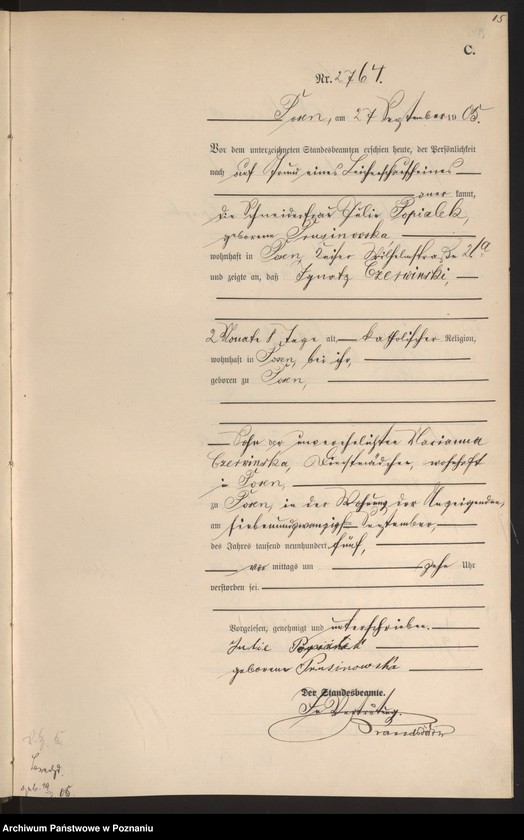 15
C.
Nr. 2764.
Posen, am 27 September 1905.
Vor dem unterzeichneten Standesbeamten erschien heute, der Persönlichkeit
nach auf Grund eines Leichenschauscheines
aner kannt,
die Schneiderfrau Julie Popialek,
geborene Prusinowska
wohnhaft in Posen, Kaiser Wilhelmstraße 21a
und zeigte an, daß Ignatz Czerwinski,
2 Monate 8 Tage alt, katholischer Religion,
wohnhaft in Posen, bei ihr,
geboren zu Posen,
Sohn der unverehelichten Marianna
Czerwinska, Dienstmädchen, wohnhaft
in Posen,
zu Posen, in der Wohnung der Anzeigenden,
am siebenundzwanzigsten September,
des Jahres tausend neunhundert fünf,
vor mittags um zehn Uhr
verstorben sei.
Vorgelesen, genehmigt und unterschrieben.
Julie Popialek
geborene Prusinowska
Der Standesbeamte.
In Vertretung.
geb. 19/7 05.
Archiwum Państwowe w Poznaniu